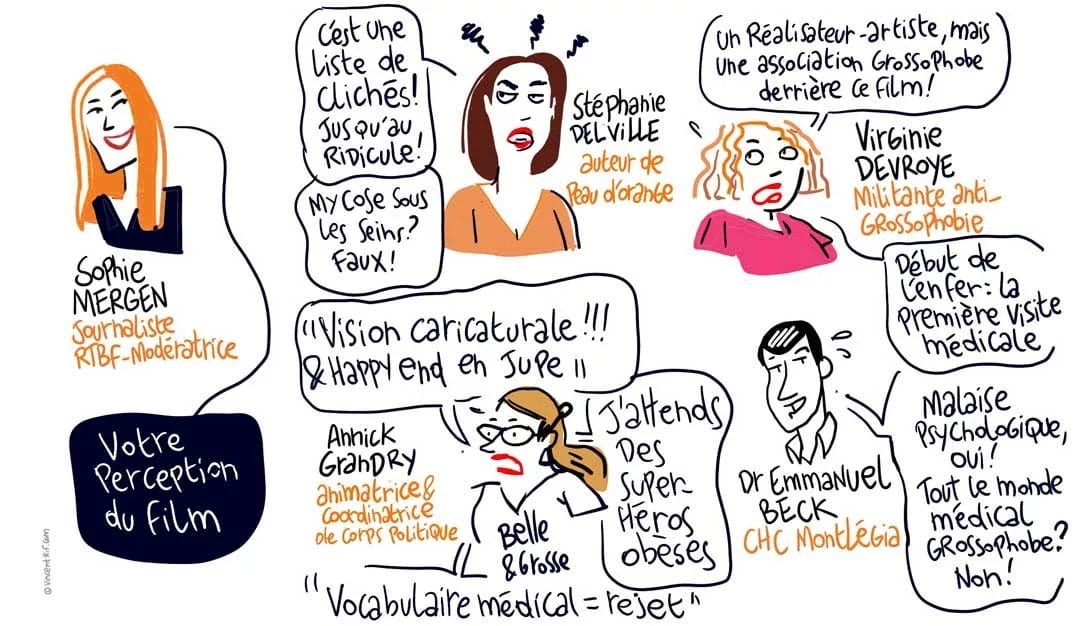 Sophie
MERGEN
Journaliste
RTBF-Modératrice
Votre
Perception
du film
C'est une
liste de
clichés!
Jusqu'au
Ridicule!
Mycose sous
les seins?
Faux!
Stéphanie
DELVILLE
auteur de
Peau d'orange
un Réalisateur-artiste, mais
une association Grossophobe
derrière ce film!
Virginie
DEVROYE
Militante anti-
Grossophobie
Début de
l'enfer: la
première visite
médicale
"Vision caricaturale!!!
& Happy end en Jupe"
Annick
GRANDRY
animatrice &
Coordinatrice
de Corps Politique
Belle
& Grosse
J'attends
Des
Super-
Héros
obèses
"Vocabulaire médical = rejet"
Dr Emmanuel
BECK
CHC Montlégia
Malaise
Psychologique,
oui!
Tout le monde
médical
Grossophobe?
Non!
© vincentrif.com